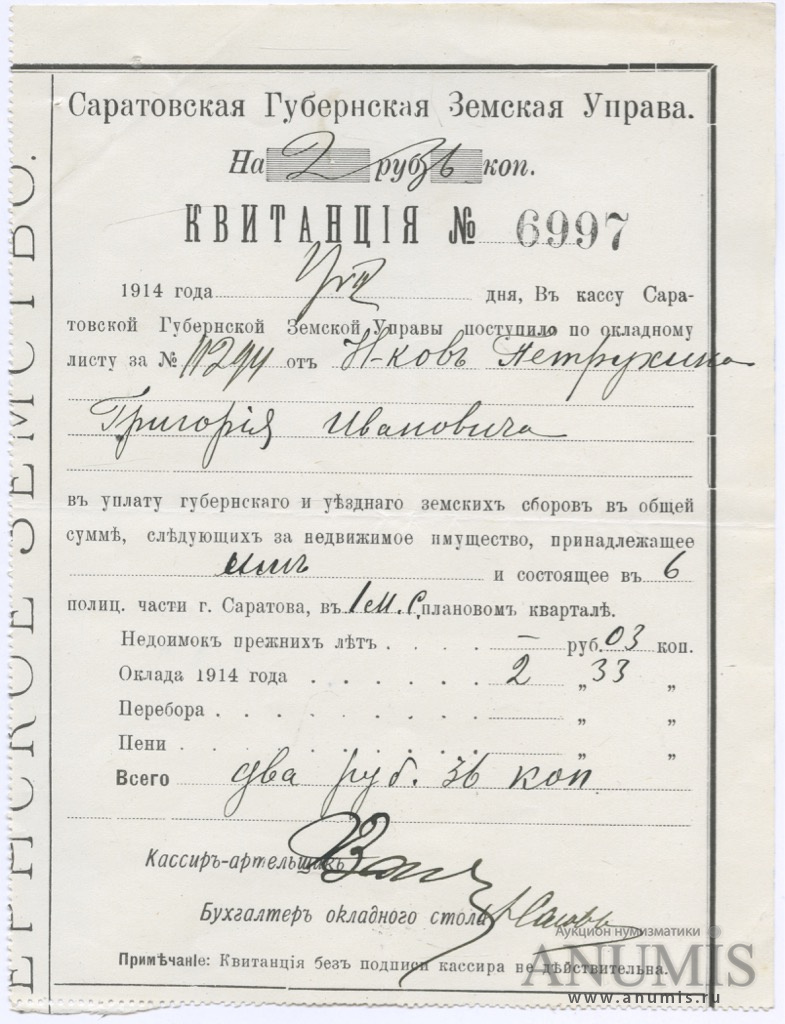 Саратовская Губернская Земская Управа.
На 2 руб. 36 коп.
КВИТАНЦІЯ № 6997
1914 года дня, Въ кассу Сара-
товской Губернской Земской Управы поступило по окладному
листу за № 11294 отъ Н-ковъ Петрухина
Григорія Ивановича
въ уплату губернскаго и уѣзднаго земскихъ сборовъ въ общей
суммѣ, слѣдующихъ за недвижимое имущество, принадлежащее
имъ и состоящее въ 6
полиц. части г. Саратова, въ 1 м. с. плановомъ кварталѣ.
Недоимокъ прежнихъ лѣтъ . . . . — руб. 03 коп.
Оклада 1914 года . . . . . . 2 „ 33 „
Перебора . . . . . . . . „ „
Пени . . . . . . . . „ „
Всего два руб. 36 коп
Кассиръ-артельщикъ
Бухгалтеръ окладного стола
Примѣчаніе: Квитанція безъ подписи кассира не дѣйствительна.
ЕРНСКОЕ ЗЕМСТВО.
Аукцион нумизматики
ANUMIS
www.anumis.ru